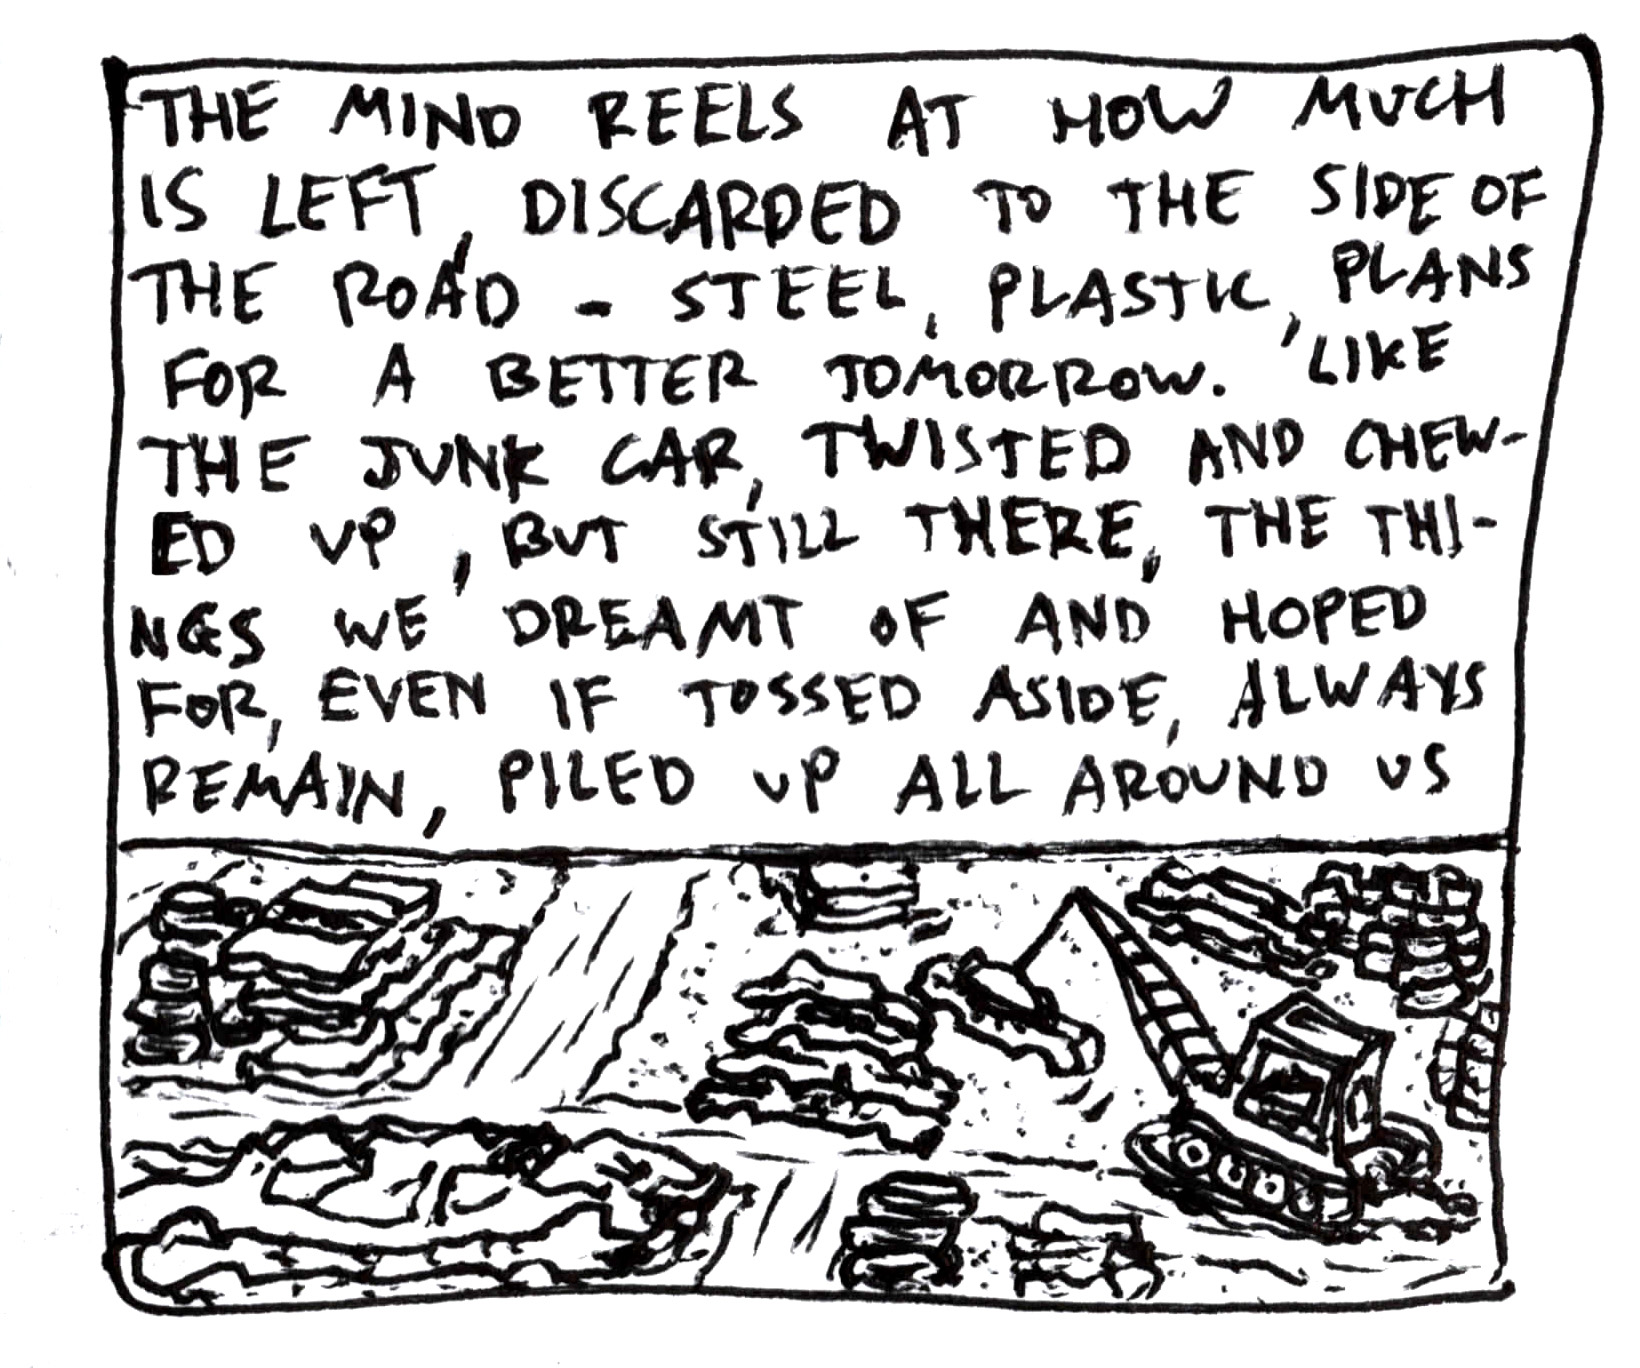 THE MIND REELS AT HOW MUCH
IS LEFT, DISCARDED TO THE SIDE OF
THE ROAD - STEEL, PLASTIC, PLANS
FOR A BETTER TOMORROW. LIKE
THE JUNK CAR, TWISTED AND CHEW-
ED UP, BUT STILL THERE, THE THI-
NGS WE DREAMT OF AND HOPED
FOR, EVEN IF TOSSED ASIDE, ALWAYS
REMAIN, PILED UP ALL AROUND US